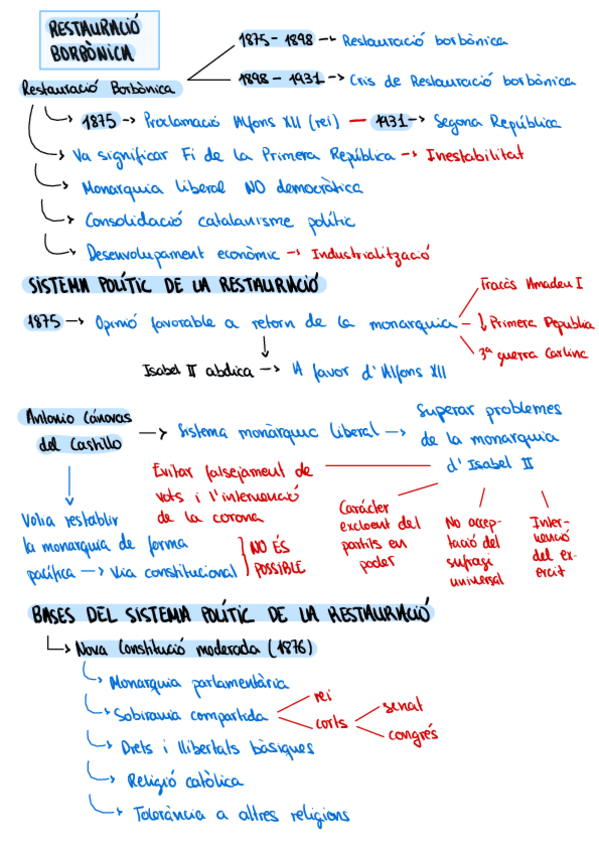 RESTAURACIÓ
BORBÒNICA
1875 - 1898 → Restauració borbònica
Restauració Borbònica
1898 - 1931 → Crisi de Restauració borbònica
1875 → Proclamació Alfons XII (rei) — 1931 → Segona República
Va significar Fi de la Primera República → Inestabilitat
Monarquia liberal NO democràtica
Consolidació catalanisme polític
Desenvolupament econòmic → Industrialització
SISTEMA POLÍTIC DE LA RESTAURACIÓ
Fracàs Amadeu I
1875 → Opinió favorable a retorn de la monarquia
Primera República
3ª guerra Carlina
Isabel II abdica → A favor d'Alfons XII
Antonio Cánovas
del Castillo
→ Sistema monàrquic liberal →
Superar problemes
de la monarquia
d'Isabel II
Evitar falsejament de
vots i l'intervenció
de la corona
Caràcter
excloent del
partits en
poder
No accep-
tació del
sufragi
universal
Inter-
venció
del ex-
ercit
Volia restablir
la monarquia de forma
pacífica → Via constitucional
NO ÉS
POSSIBLE
BASES DEL SISTEMA POLÍTIC DE LA RESTAURACIÓ
Nova Constitució moderada (1876)
Monarquia parlamentària
Sobirania compartida
rei
corts
senat
congrés
Drets i llibertats bàsiques
Religió catòlica
Tolerància a altres religions